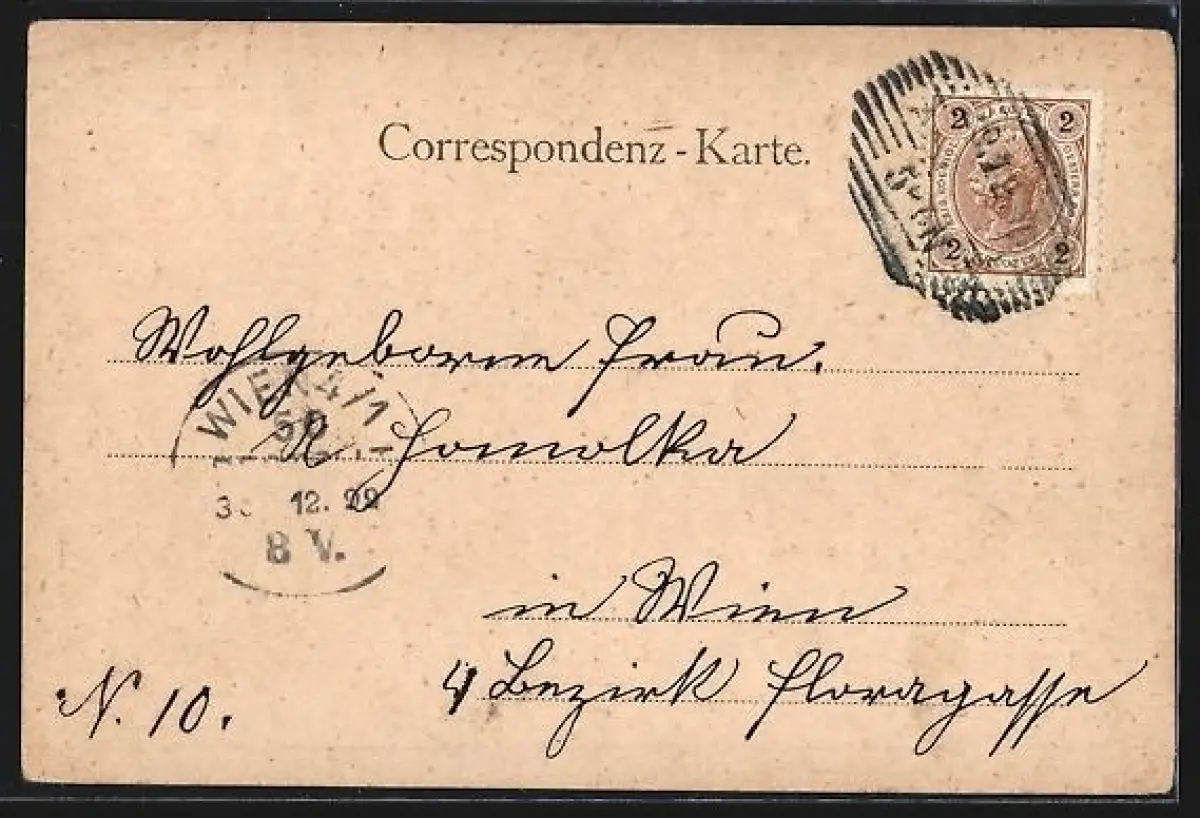 Correspondenz-Karte.
2 2
2 2
Wohlgeborne Frau.
WIEN 4/1
50
R. Homolka
12. 99
8 V.
in Wien
4 Bezirk Floragasse
N. 10.